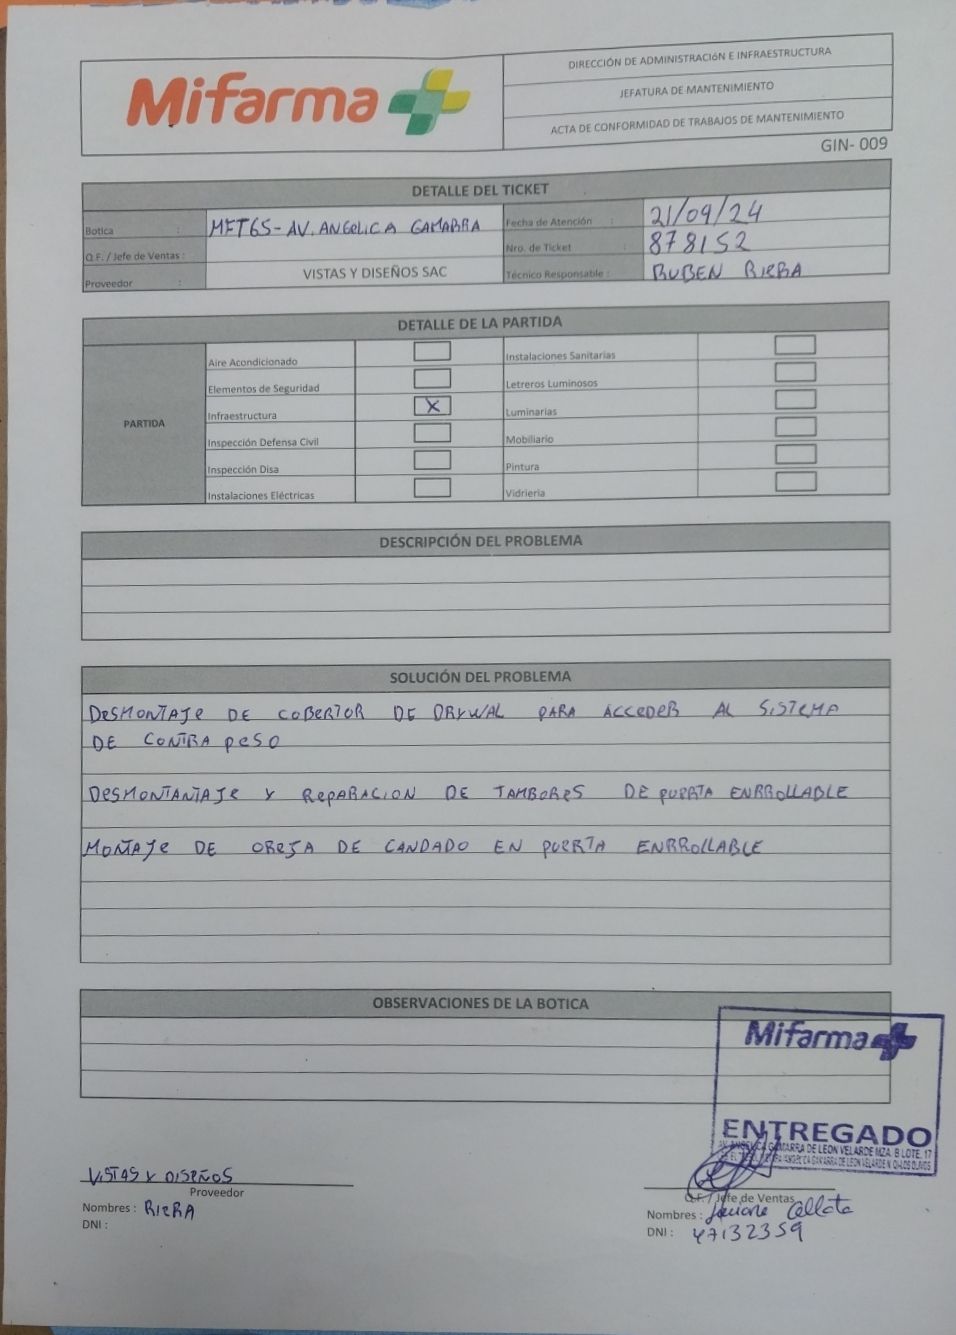 Mifarma
DIRECCIÓN DE ADMINISTRACIÓN E INFRAESTRUCTURA
JEFATURA DE MANTENIMIENTO
ACTA DE CONFORMIDAD DE TRABAJOS DE MANTENIMIENTO
GIN- 009
DETALLE DEL TICKET
Botica : MFT65 - AV. ANGELICA GAMARRA
Fecha de Atención : 21/09/24
Q.F. / Jefe de Ventas :
Nro. de Ticket : 878152
Proveedor : VISTAS Y DISEÑOS SAC
Técnico Responsable : RUBEN RIERA
DETALLE DE LA PARTIDA
PARTIDA
Aire Acondicionado
Instalaciones Sanitarias
Elementos de Seguridad
Letreros Luminosos
Infraestructura X
Luminarias
Inspección Defensa Civil
Mobiliario
Inspección Disa
Pintura
Instalaciones Eléctricas
Vidrieria
DESCRIPCIÓN DEL PROBLEMA
SOLUCIÓN DEL PROBLEMA
DESMONTAJE DE COBERTOR DE DRYWAL PARA ACCEDER AL SISTEMA
DE CONTRA PESO
DESMONTANTAJE Y REPARACION DE TAMBORES DE PUERTA ENRROLLABLE
MONTAJE DE OREJA DE CANDADO EN PUERTA ENRROLLABLE
OBSERVACIONES DE LA BOTICA
Mifarma
ENTREGADO
AV. ANGELICA GAMARRA DE LEON VELARDE MZA. B LOTE. 17
VISTAS Y DISEÑOS
Proveedor
Nombres : RIERA
DNI :
Q.F. / Jefe de Ventas
Nombres :
DNI : 47132359